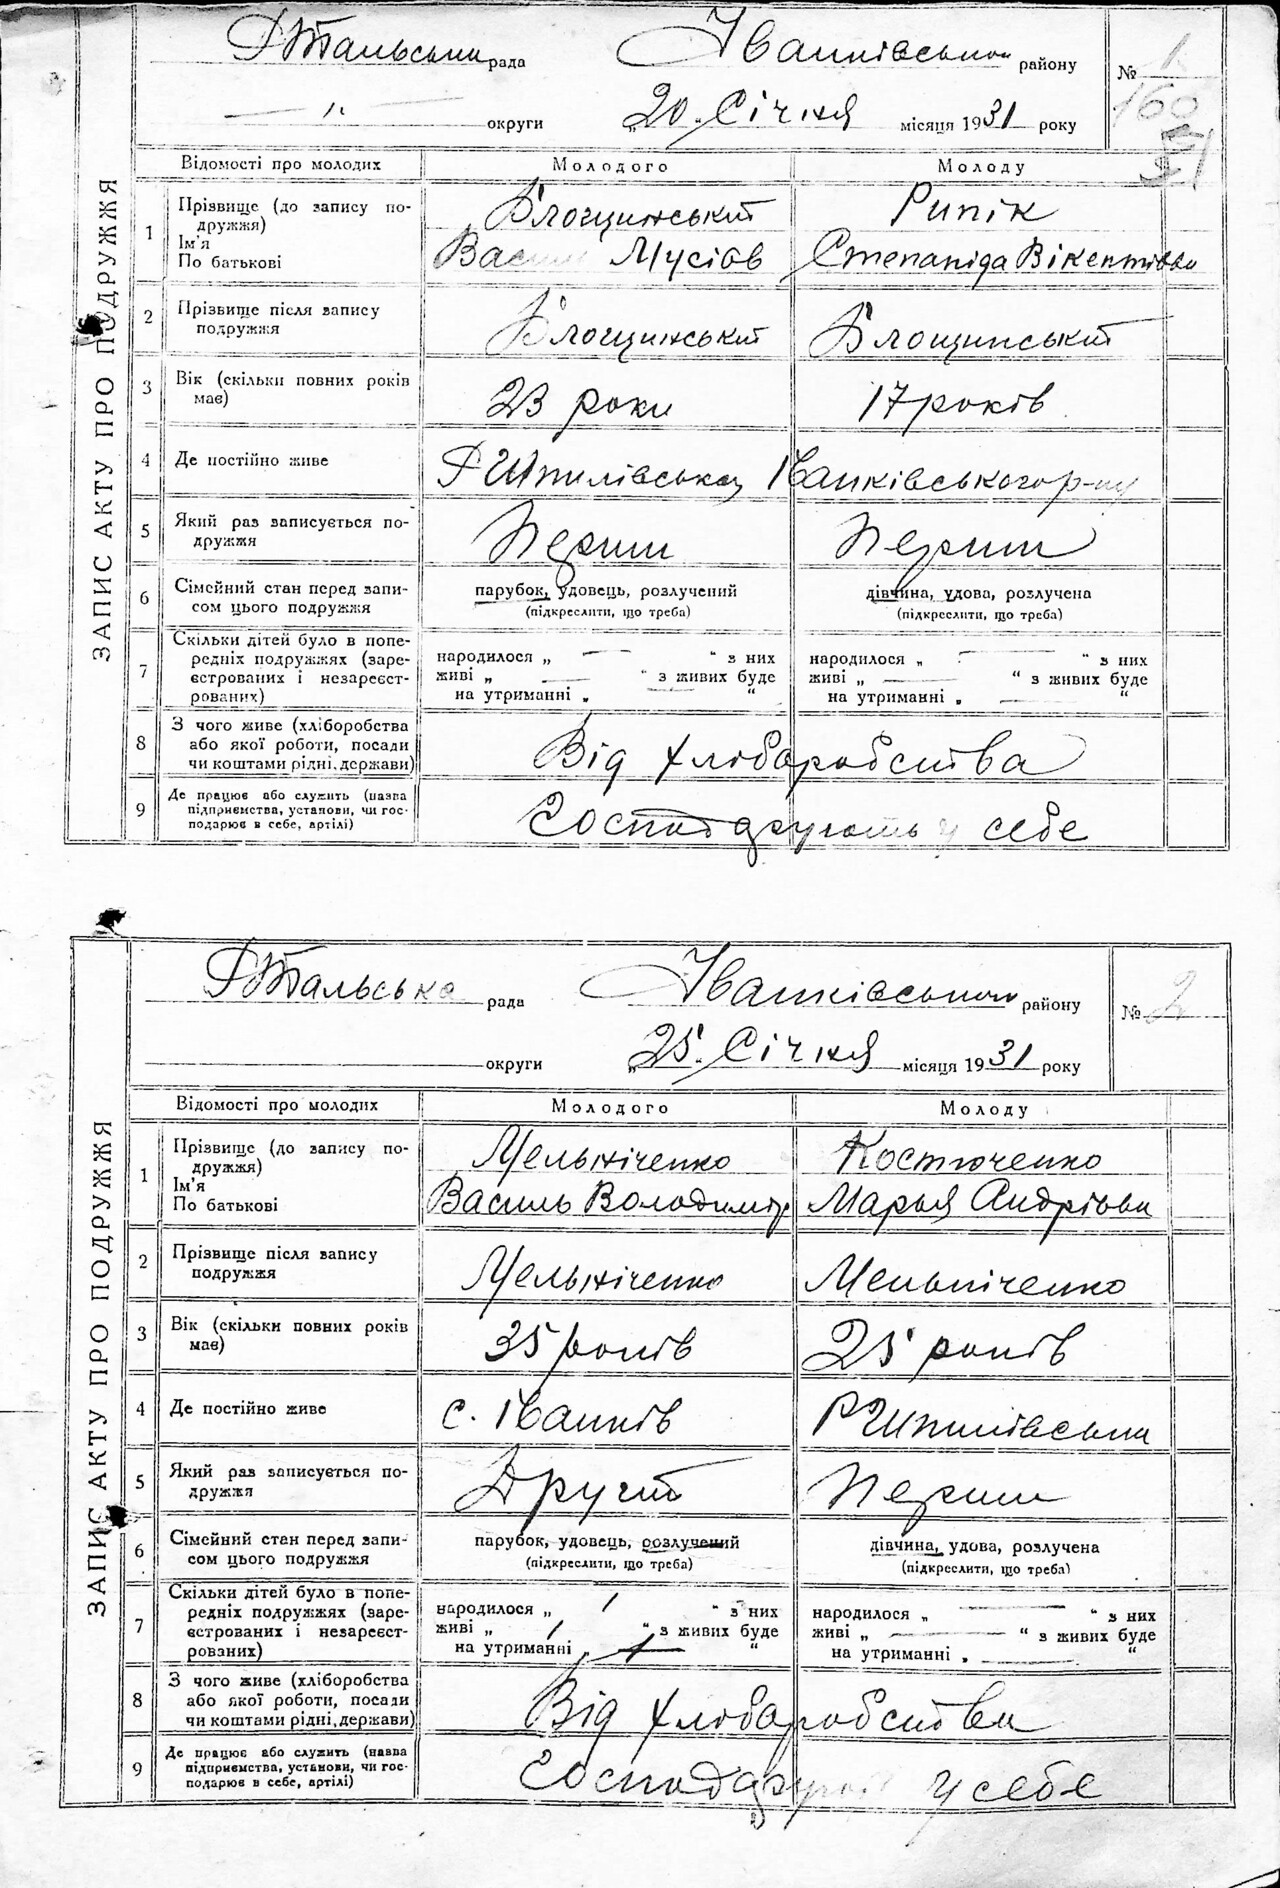 ЗАПИС АКТУ ПРО ПОДРУЖЖЯ
Р Тальська рада Іванківського району № 1
160
— " — округи „20. Січня місяця 1931 року
Відомості про молодих Молодого Молоду
1 Прізвище (до запису по-дружжя) Блощинський Рипік
Ім'я
По батькові Василь Мусіїв Степаніда Вікентіївна
2 Прізвище після запису подружжя Блощинський Блощинський
3 Вік (скільки повних років має) 23 роки 17 років
4 Де постійно живе Р Шпилівська Іванківського р-ну
5 Який раз записується по-дружжя Перший Перший
6 Сімейний стан перед запи-сом цього подружжя парубок, удовець, розлучений дівчина, удова, розлучена
(підкреслити, що треба) (підкреслити, що треба)
7 Скільки дітей було в попе-редніх подружжях (заре-єстрованих і незареєст-рованих) народилося „ — “ з них народилося „ — “ з них
живі „ — “ з живих буде живі „ — “ з живих буде
на утриманні „ — “ на утриманні „ — “
8 З чого живе (хліборобства або якої роботи, посади чи коштами рідні, держави) Від хлібаробства
9 Де працює або служить (назва підприємства, установи, чи гос-подарює в себе, артілі) Господарують у себе
ЗАПИС АКТУ ПРО ПОДРУЖЖЯ
Р Тальська рада Іванківського району № 2
округи „25. Січня місяця 1931 року
Відомості про молодих Молодого Молоду
1 Прізвище (до запису по-дружжя) Мельніченко Костюченко
Ім'я
По батькові Василь Володимір Марья Андріівна
2 Прізвище після запису подружжя Мельніченко Мельніченко
3 Вік (скільки повних років має) 35 років 25 років
4 Де постійно живе с. Іванків Р Шпилівська
5 Який раз записується по-дружжя Другий Перший
6 Сімейний стан перед запи-сом цього подружжя парубок, удовець, розлучений дівчина, удова, розлучена
(підкреслити, що треба) (підкреслити, що треба)
7 Скільки дітей було в попе-редніх подружжях (заре-єстрованих і незареєст-рованих) народилося „ 1 “ з них народилося „ — “ з них
живі „ 1 “ з живих буде живі „ — “ з живих буде
на утриманні „ 1 “ на утриманні „ — “
8 З чого живе (хліборобства або якої роботи, посади чи коштами рідні, держави) Від хлібаробства
9 Де працює або служить (назва підприємства, установи, чи гос-подарює в себе, артілі) Господарують у себе